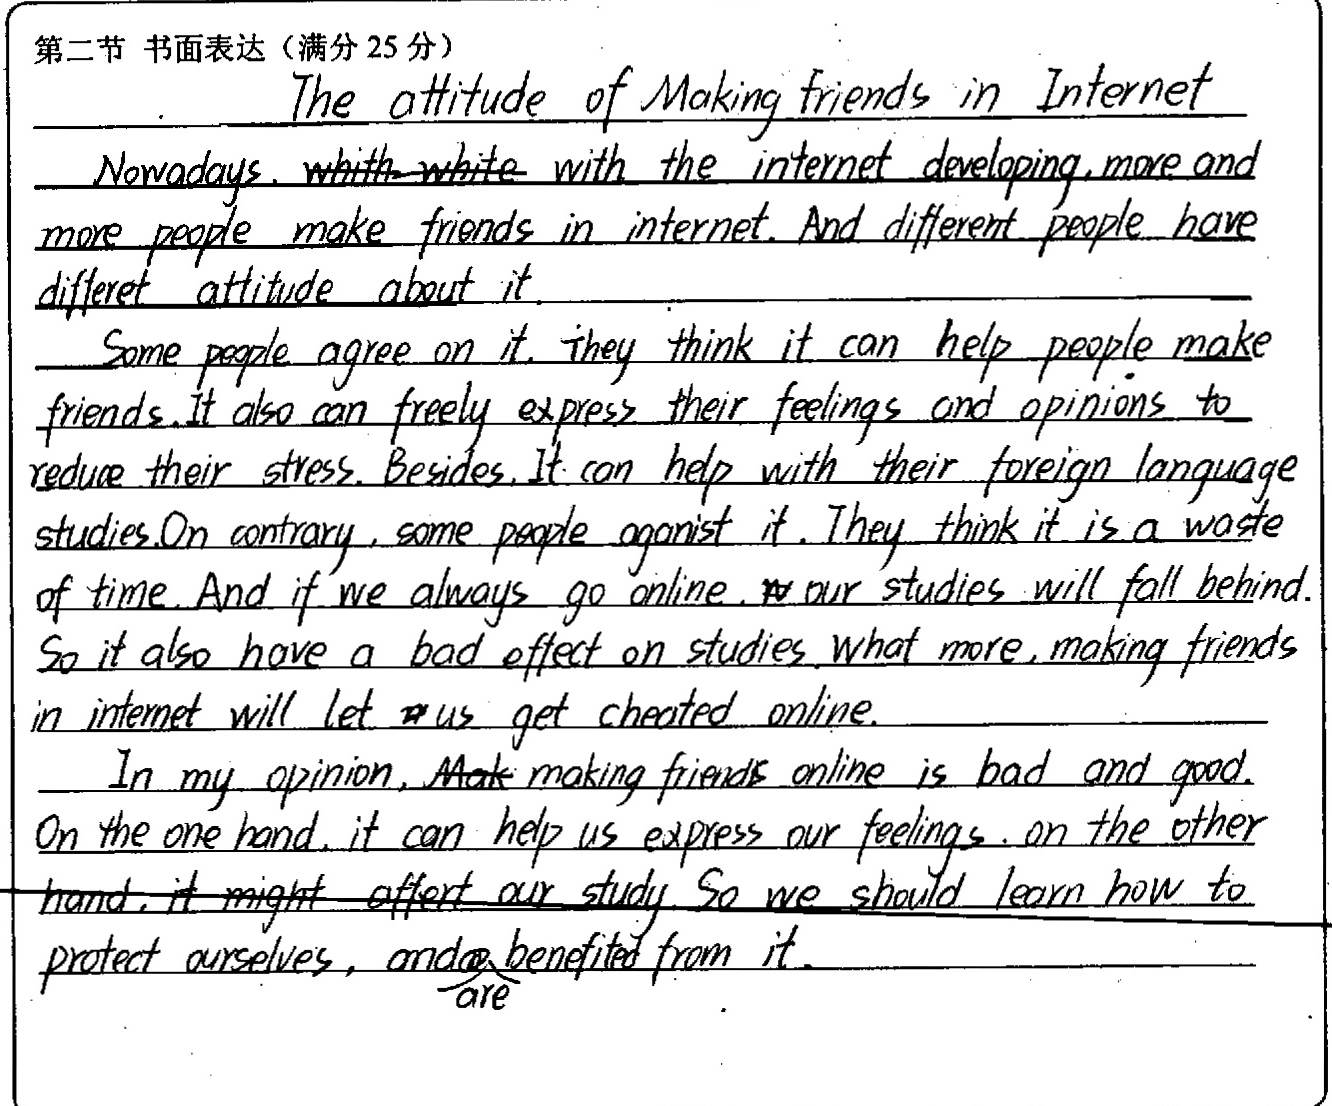 第二节 书面表达（满分 25 分）
The attitude of Making friends in Internet
Nowadays, with the internet developing, more and
more people make friends in internet. And different people have
differet attitude about it.
Some people agree on it. They think it can help people make
friends. It also can freely express their feelings and opinions to
reduce their stress. Besides, It can help with their foreign language
studies. On contrary, some people aganist it. They think it is a waste
of time. And if we always go online, our studies will fall behind.
So it also have a bad effect on studies. What more, making friends
in internet will let us get cheated online.
In my opinion, making friends online is bad and good.
On the one hand, it can help us express our feelings. on the other
hand, it might affert our study. So we should learn how to
protect ourselves, and are benefited from it.